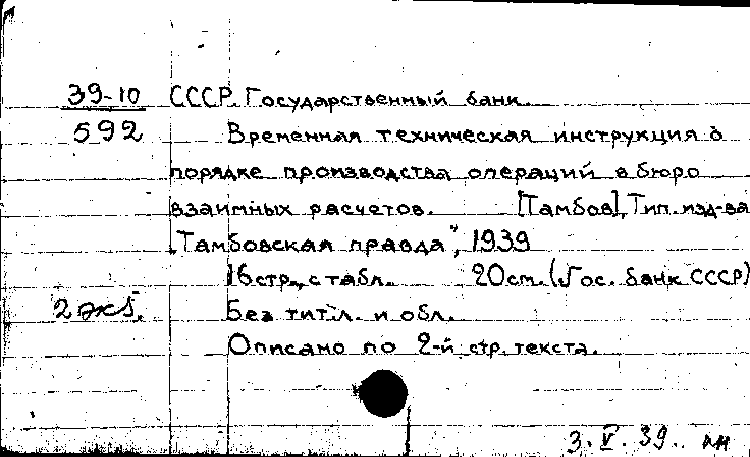 39-10 СССР. Государственный банк.
592 Временная техническая инструкция о
порядке производства операций в бюро
взаимных расчетов. [Тамбов], Тип. изд-ва
„Тамбовская правда", 1939
16 стр., с табл. 20 см. (Гос. банк СССР)
2 экз. Без тит. л. и обл.
Описано по 2-й стр. текста.
3. V. 39.